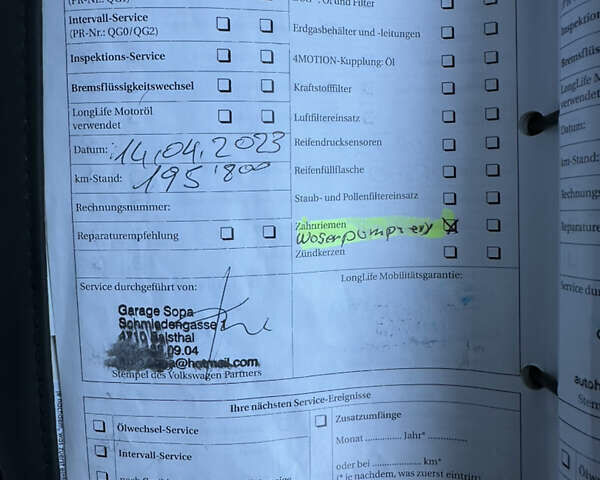 (PR-Nr.: QG0/QG2)
Intervall-Service
(PR-Nr.: QG0/QG2)
Inspektions-Service
Bremsflüssigkeitswechsel
LongLife Motoröl
verwendet
Datum: 14.04.2023
km-Stand: 195'800
Rechnungsnummer:
Reparaturempfehlung
Service durchgeführt von:
Garage Sopa
Schmiedengasse
4710 Balsthal
09.04
@hotmail.com
Stempel des Volkswagen Partners
Öl und Filter
Erdgasbehälter und -leitungen
4MOTION-Kupplung: Öl
Kraftstofffilter
Luftfiltereinsatz
Reifendrucksensoren
Reifenfüllflasche
Staub- und Pollenfiltereinsatz
Zahnriemen
Zündkerzen
LongLife Mobilitätsgarantie:
Ihre nächsten Service-Ereignisse
Ölwechsel-Service
Intervall-Service
Zusatzumfänge
Monat Jahr*
oder bei km*
(* je nachdem, was zuerst eintritt)
Bremsflüss
LongLife
verwendet
Datum:
km-Stand:
Rechnungs
Reparature
Service du
autoh
Stem